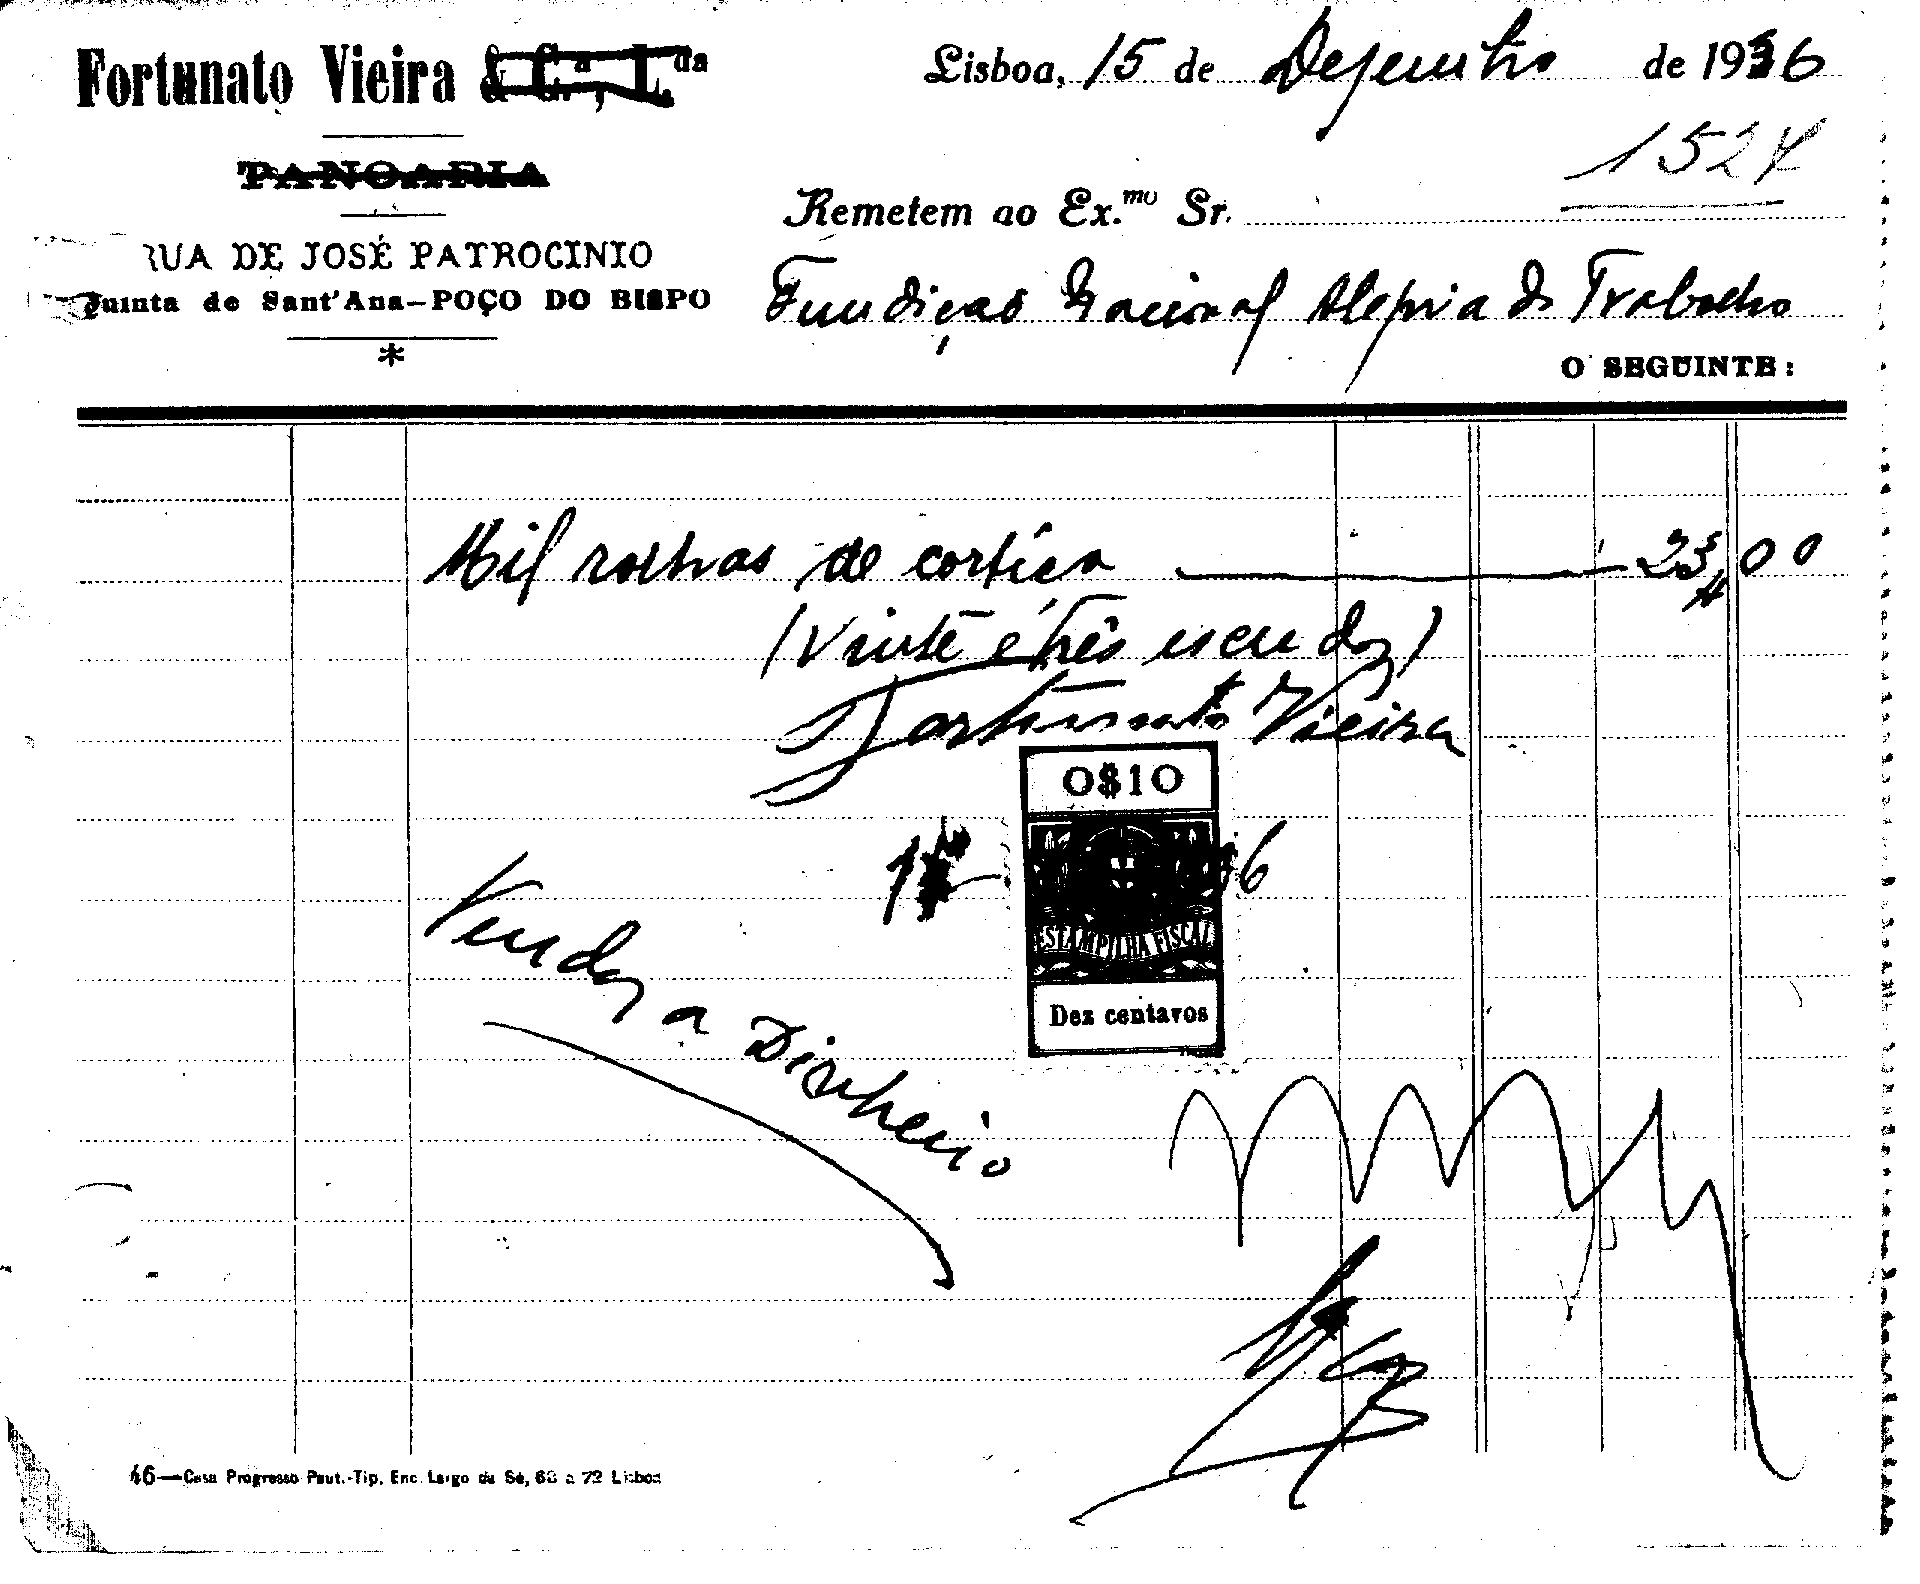 Fortunato Vieira & C.ª, L.da
PANOARIA
RUA DE JOSÉ PATROCINIO
Quinta de Sant'Ana—POÇO DO BISPO
*
Lisboa, 15 de Dezembro de 1936
1524
Remetem ao Ex.mo Sr.
Fundição Nacional Alegria do Trabalho
O SEGUINTE:
Mil rolhas de cortiça 23$00
(Vinte e três escudos)
Fortunato Vieira
0$10
ESTAMPILHA FISCAL
Dez centavos
Vendas a Dinheiro
46—Casa Progresso Paut.-Tip. Enc. Largo da Sé, 68 a 72 Lisboa